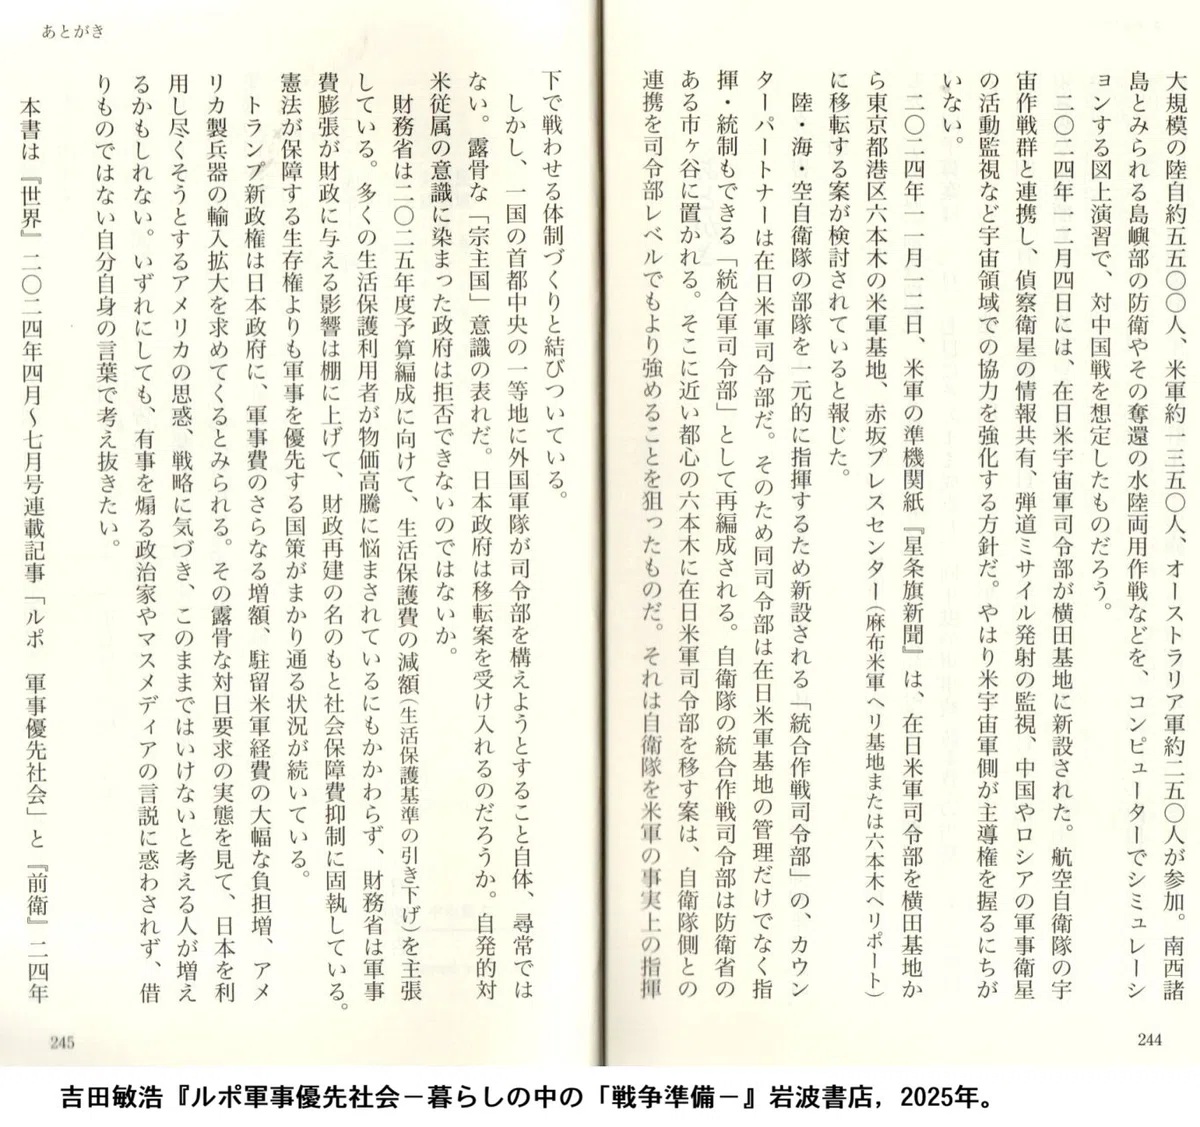 大規模の陸自約五五〇〇人、米軍約一三五〇人、オーストラリア軍約二五〇人が参加。南西諸
島とみられる島嶼部の防衛やその奪還の水陸両用作戦などを、コンピューターでシミュレーシ
ョンする図上演習で、対中国戦を想定したものだろう。
二〇二四年一二月四日には、在日米宇宙軍司令部が横田基地に新設された。航空自衛隊の宇
宙作戦群と連携し、偵察衛星の情報共有、弾道ミサイル発射の監視、中国やロシアの軍事衛星
の活動監視など宇宙領域での協力を強化する方針だ。やはり米宇宙軍側が主導権を握るにちが
いない。
二〇二四年一一月一二日、米軍の準機関紙『星条旗新聞』は、在日米軍司令部を横田基地か
ら東京都港区六本木の米軍基地、赤坂プレスセンター(麻布米軍ヘリ基地または六本木ヘリポート)
に移転する案が検討されていると報じた。
陸・海・空自衛隊の部隊を一元的に指揮するため新設される「統合作戦司令部」の、カウン
ターパートナーは在日米軍司令部だ。そのため同司令部は在日米軍基地の管理だけでなく指
揮・統制もできる「統合軍司令部」として再編成される。自衛隊の統合作戦司令部は防衛省の
ある市ヶ谷に置かれる。そこに近い都心の六本木に在日米軍司令部を移す案は、自衛隊側との
連携を司令部レベルでもより強めることを狙ったものだ。それは自衛隊を米軍の事実上の指揮
244
あとがき
下で戦わせる体制づくりと結びついている。
しかし、一国の首都中央の一等地に外国軍隊が司令部を構えようとすること自体、尋常では
ない。露骨な「宗主国」意識の表れだ。日本政府は移転案を受け入れるのだろうか。自発的対
米従属の意識に染まった政府は拒否できないのではないか。
財務省は二〇二五年度予算編成に向けて、生活保護費の減額(生活保護基準の引き下げ)を主張
している。多くの生活保護利用者が物価高騰に悩まされているにもかかわらず、財務省は軍事
費膨張が財政に与える影響は棚に上げて、財政再建の名のもと社会保障費抑制に固執している。
憲法が保障する生存権よりも軍事を優先する国策がまかり通る状況が続いている。
トランプ新政権は日本政府に、軍事費のさらなる増額、駐留米軍経費の大幅な負担増、アメ
リカ製兵器の輸入拡大を求めてくるとみられる。その露骨な対日要求の実態を見て、日本を利
用し尽くそうとするアメリカの思惑、戦略に気づき、このままではいけないと考える人が増え
るかもしれない。いずれにしても、有事を煽る政治家やマスメディアの言説に惑わされず、借
りものではない自分自身の言葉で考え抜きたい。
本書は『世界』二〇二四年四月〜七月号連載記事「ルポ 軍事優先社会」と『前衛』二四年
245
吉田敏浩『ルポ軍事優先社会－暮らしの中の「戦争準備－』岩波書店，2025年。